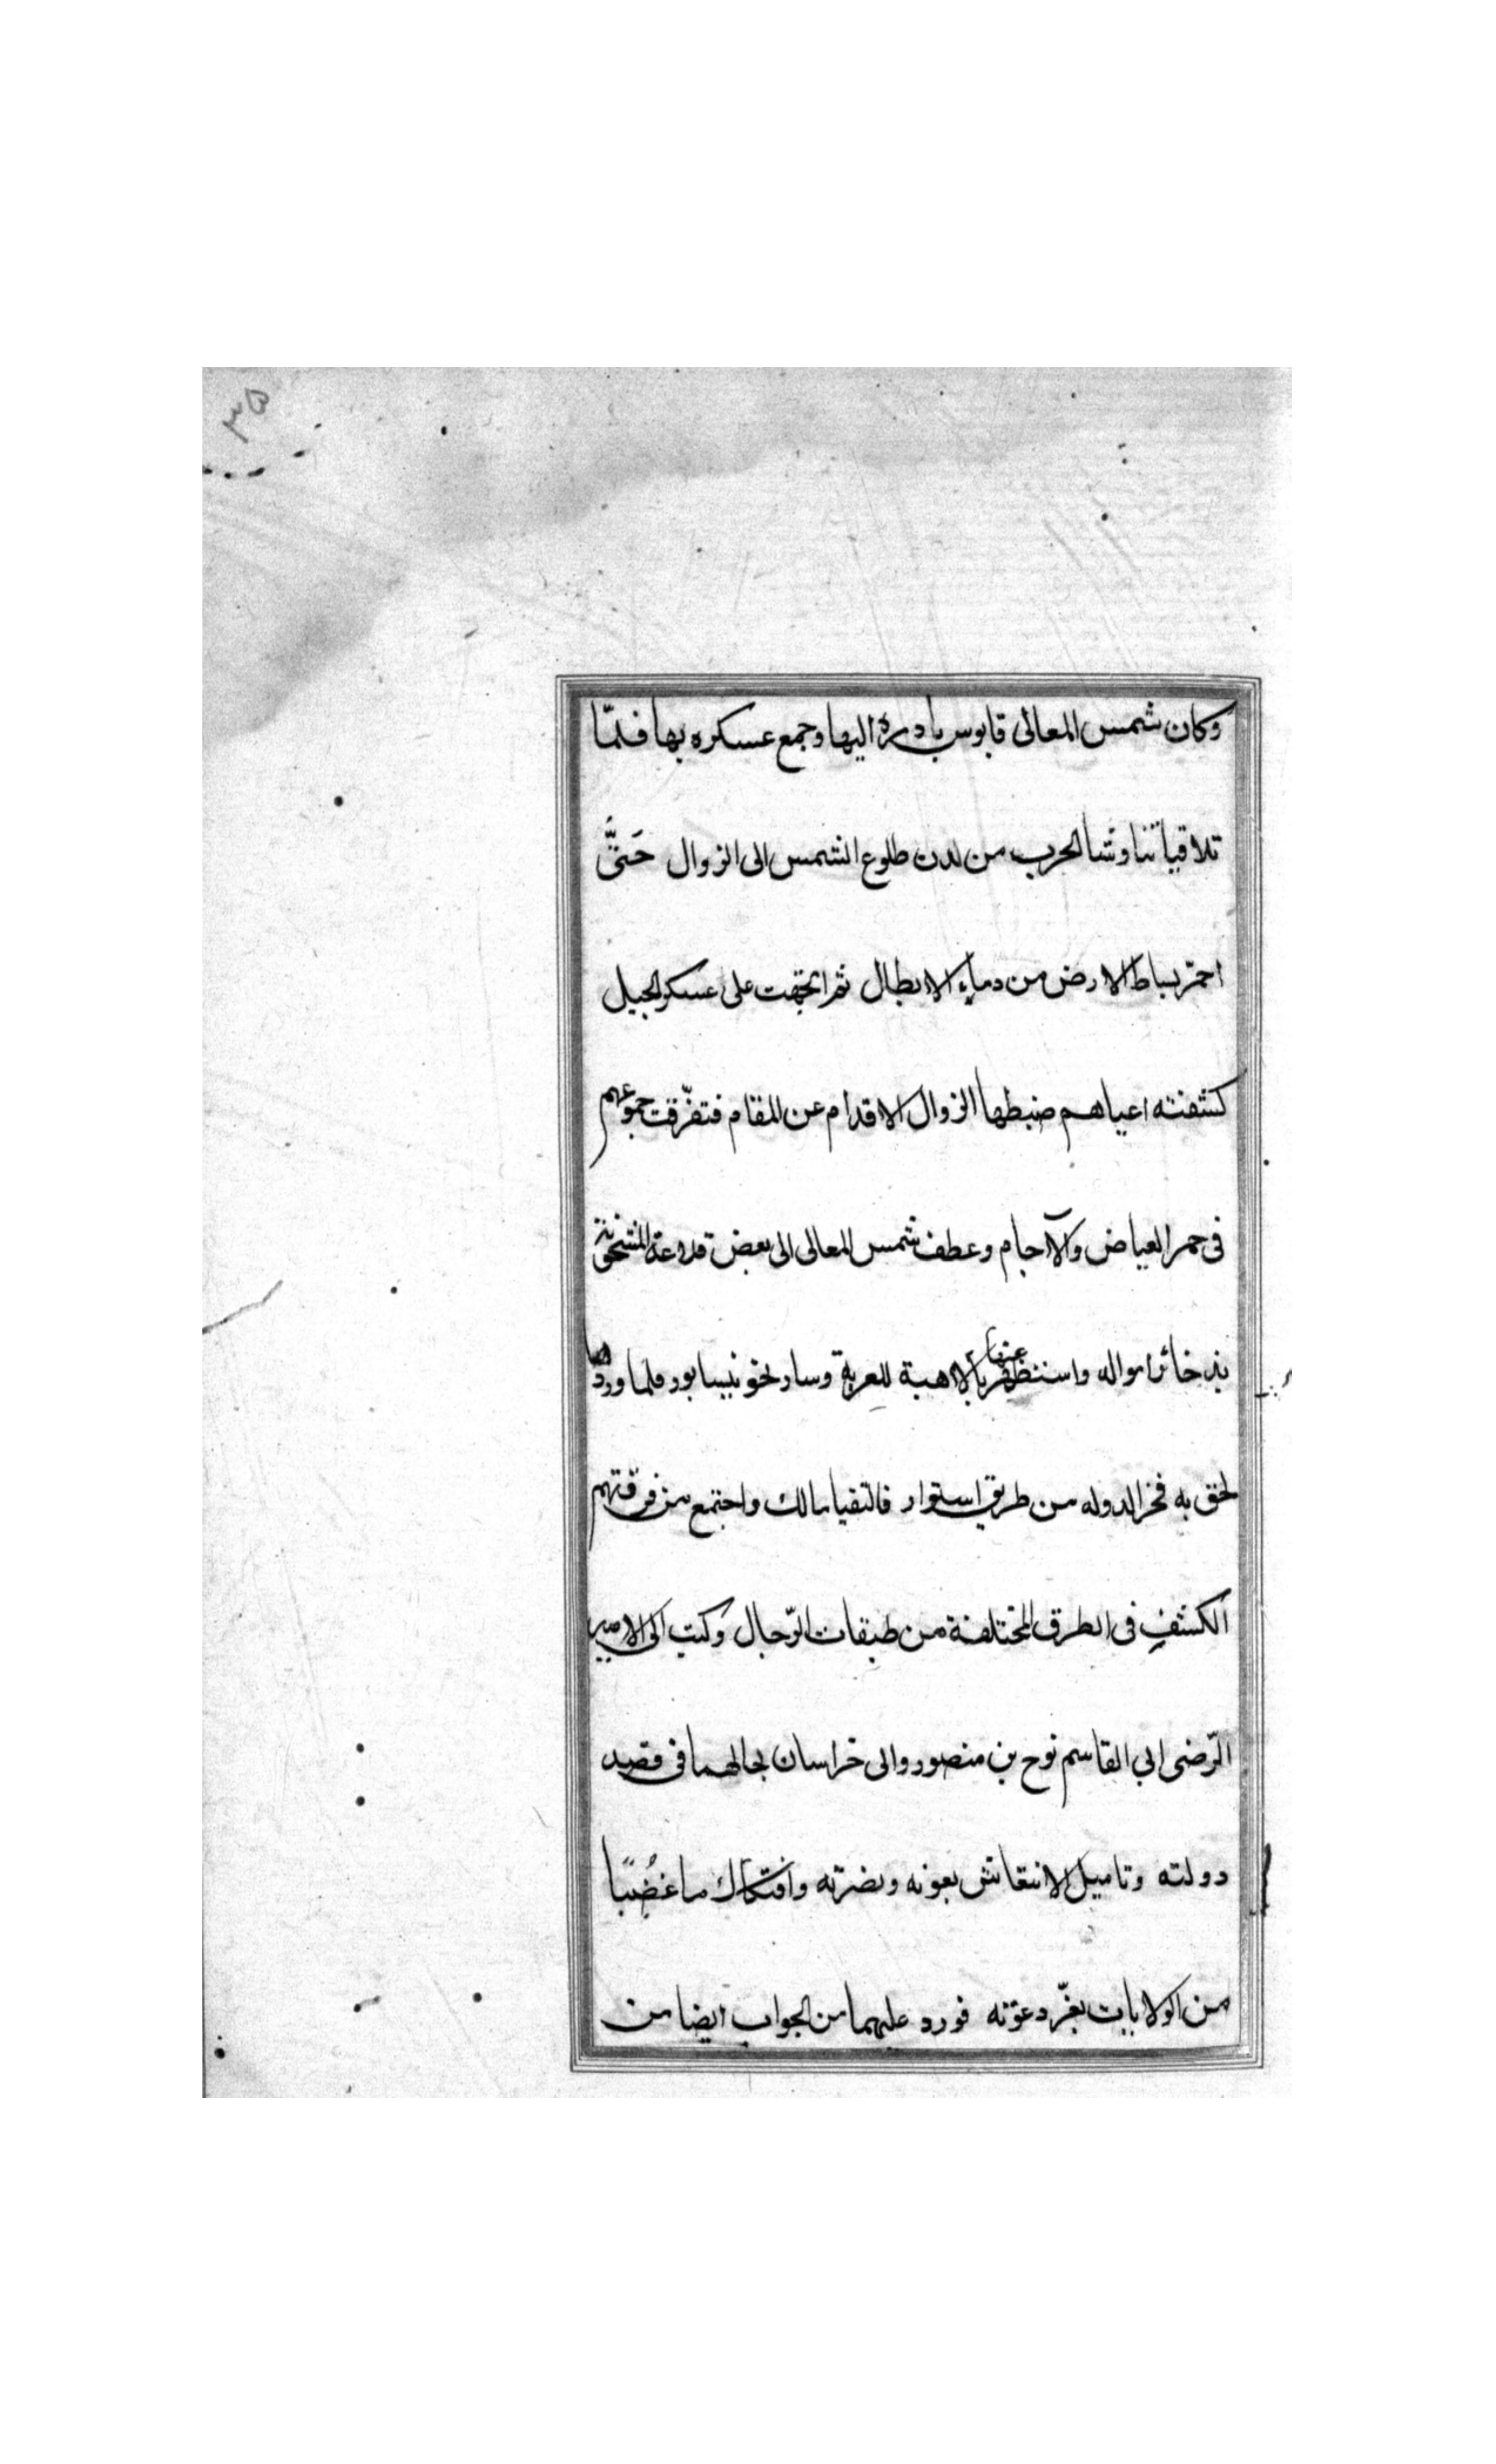 ٣٥
وكان شمس المعالى قابوس بادره اليها وجمع عسكره بها فلمّا
تلاقيا تناوشا الحرب من لدن طلوع الشمس الى الزوال حَتّٰى
احمرّ بساط الارض من دماء الابطال ثم اتجهت على عسكر الجيل
كشفته اعياهم ضبطها لزوال الاقدام عن المقام فتفرّقت جموعهم
فى خمر الغياض والآجام وعطف شمس المعالى الى بعض قلاعه المشحونة
بذخائر امواله واستظهر عنها بالاهبة للعربة وسار نحو نيسابور فلما وردها
لحق به فخر الدوله من طريق استوار فالتقيا هنالك واجتمع من فرقتهم
الكشف فى الطرق المختلفة من طبقات الرّجال وكتب الى الامير
الرّضى ابي القاسم نوح بن منصور والى خراسان بحالهما فى قصد
دولته وتاميل الانتقاش بعونه ونصرته وافتكاك ما غُصبًا
من الولايات بعزّ دعوته فورد عليهما من الجواب ايضا من